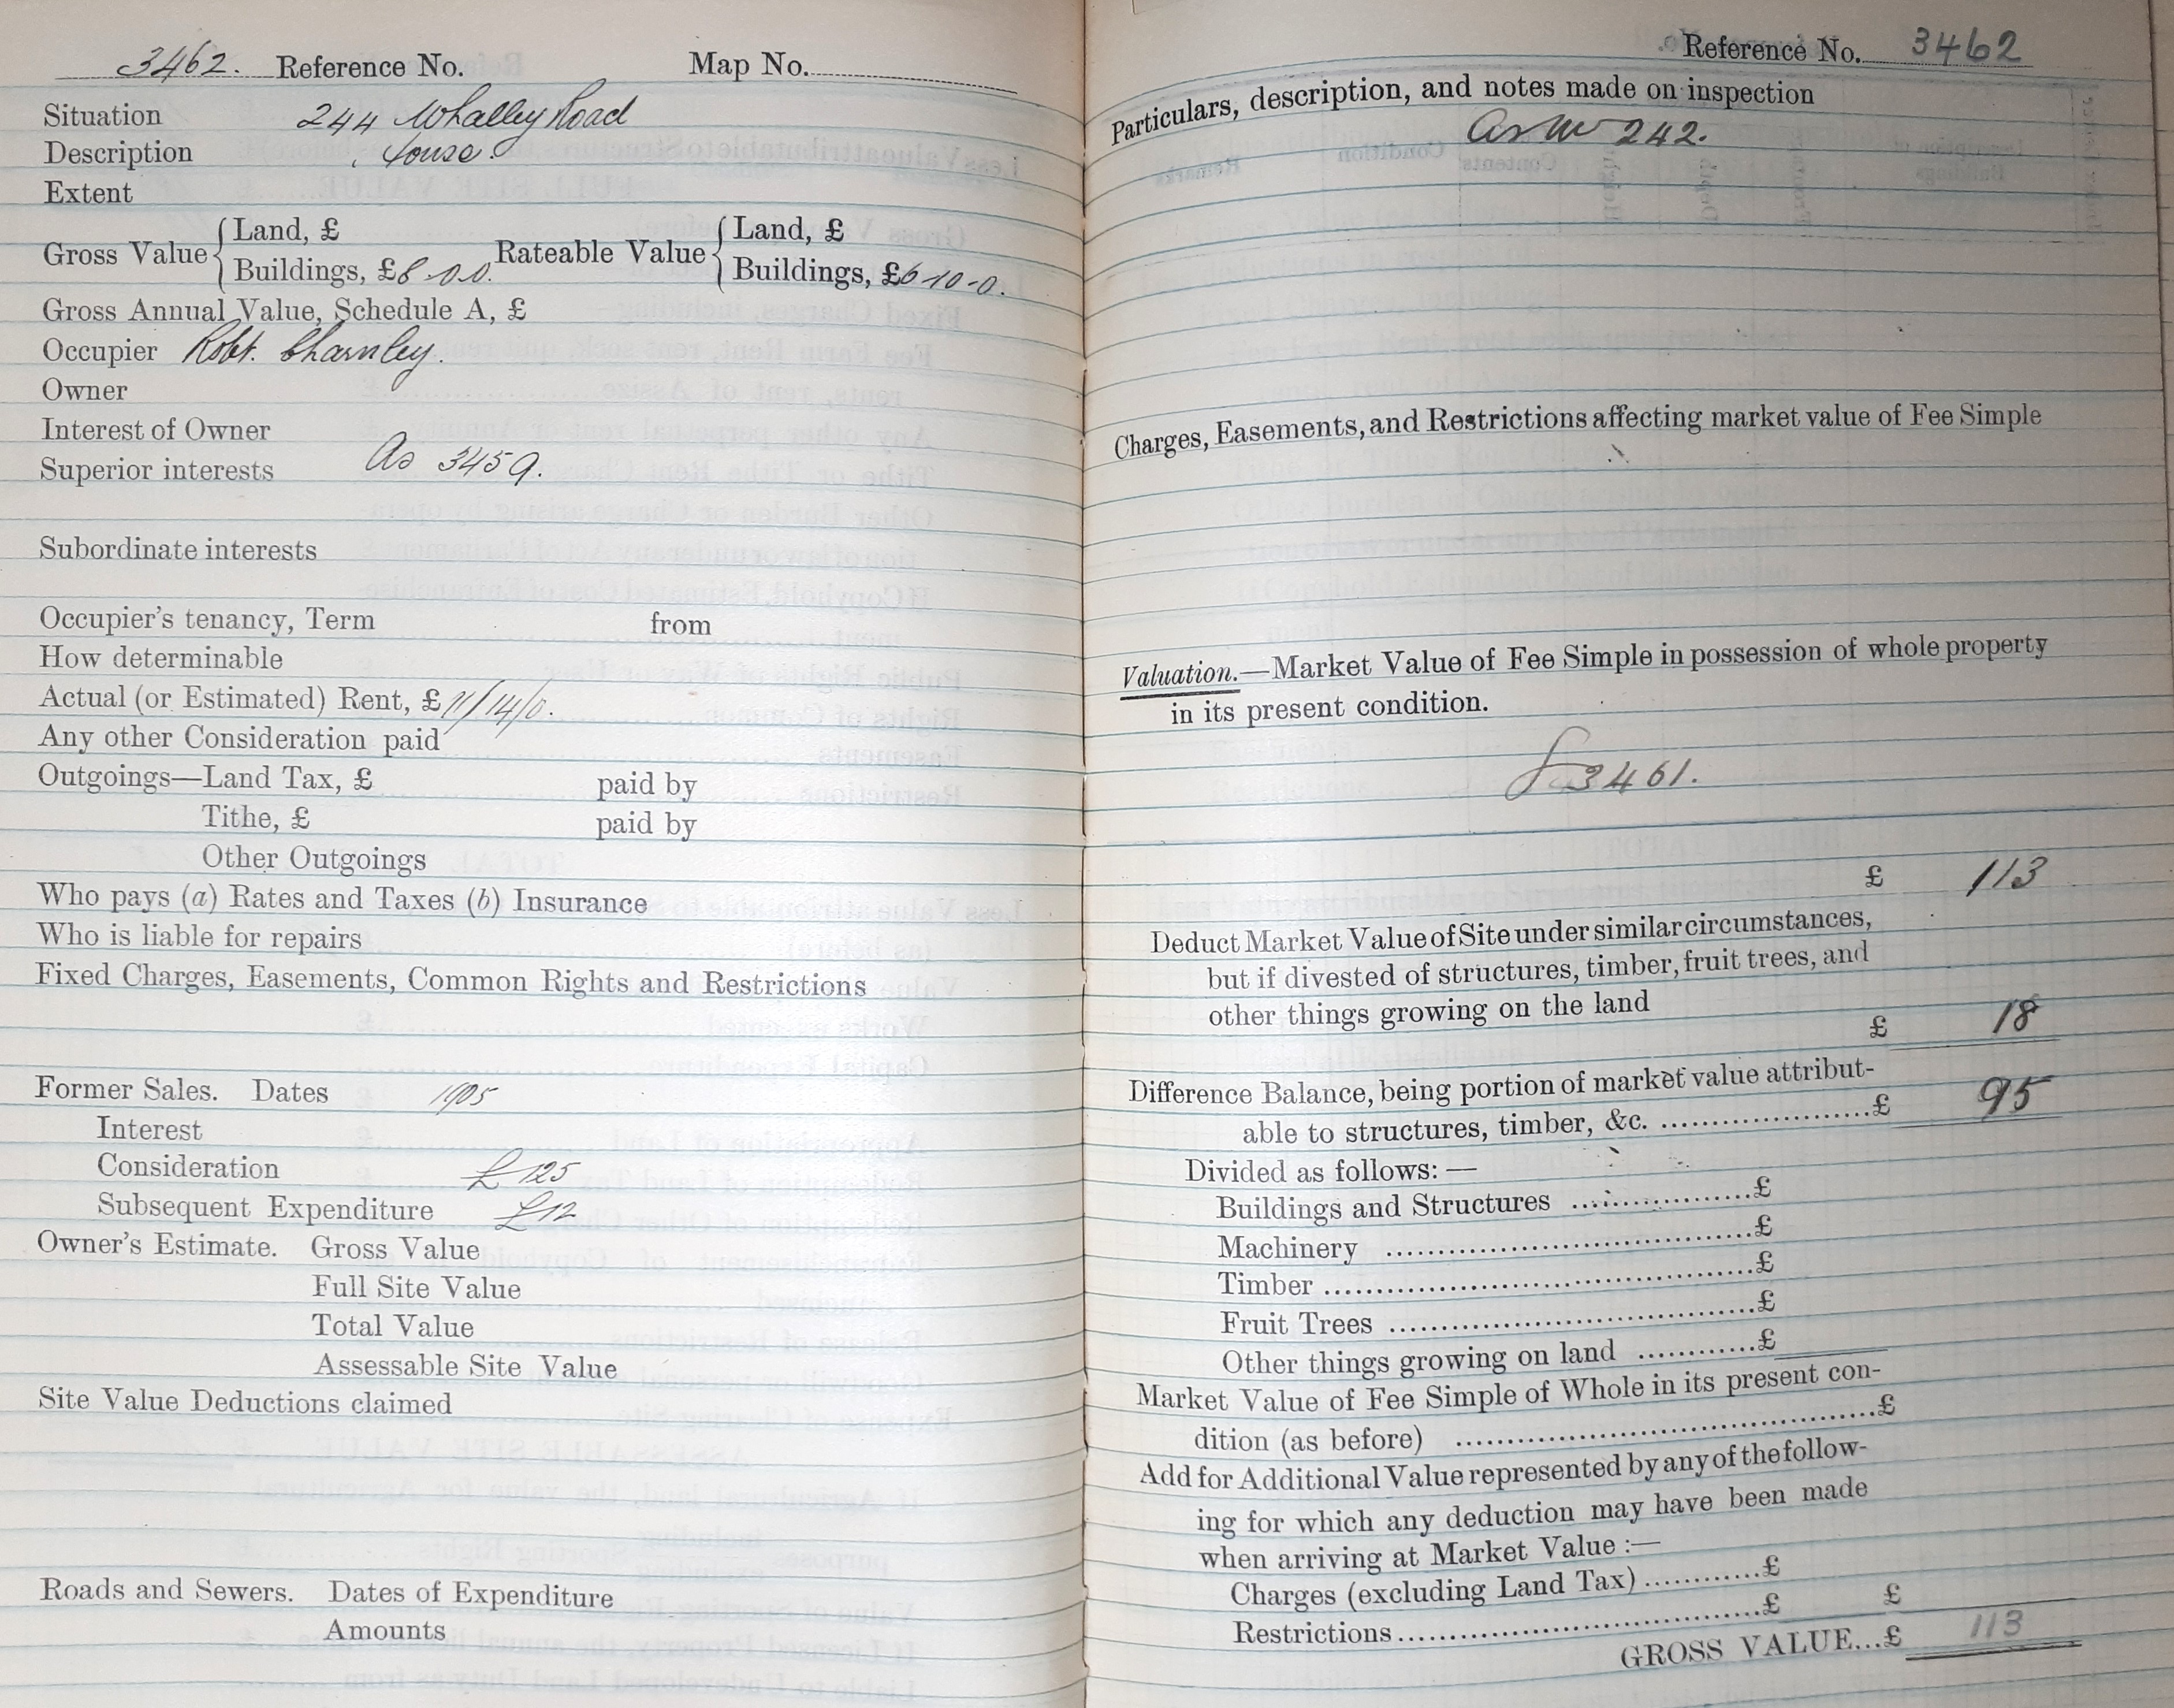 3462. Reference No. Map No.
Situation 244 Whalley Road
Description House.
Extent
Gross Value { Land, £ Rateable Value { Land, £
Buildings, £8-0-0. Buildings, £6-10-0.
Gross Annual Value, Schedule A, £
Occupier Robt. Charnley.
Owner
Interest of Owner
Superior interests As 3459.
Subordinate interests
Occupier's tenancy, Term from
How determinable
Actual (or Estimated) Rent, £11/14/0.
Any other Consideration paid
Outgoings—Land Tax, £ paid by
Tithe, £ paid by
Other Outgoings
Who pays (a) Rates and Taxes (b) Insurance
Who is liable for repairs
Fixed Charges, Easements, Common Rights and Restrictions
Former Sales. Dates 1905
Interest
Consideration £125
Subsequent Expenditure £12
Owner's Estimate. Gross Value
Full Site Value
Total Value
Assessable Site Value
Site Value Deductions claimed
Roads and Sewers. Dates of Expenditure
Amounts
Reference No. 3462
Particulars, description, and notes made on inspection
242.
Charges, Easements, and Restrictions affecting market value of Fee Simple
Valuation.—Market Value of Fee Simple in possession of whole property
in its present condition.
3461.
£ 113
Deduct Market Value of Site under similar circumstances,
but if divested of structures, timber, fruit trees, and
other things growing on the land
£ 18
Difference Balance, being portion of market value attribut-
able to structures, timber, &c. ....................£ 95
Divided as follows:—
Buildings and Structures ..................£
Machinery ....................................£
Timber ..........................................£
Fruit Trees ...................................£
Other things growing on land ............£
Market Value of Fee Simple of Whole in its present con-
dition (as before) .........................................£
Add for Additional Value represented by any of the follow-
ing for which any deduction may have been made
when arriving at Market Value :—
Charges (excluding Land Tax) ............£
Restrictions ....................................£ £
GROSS VALUE...£ 113